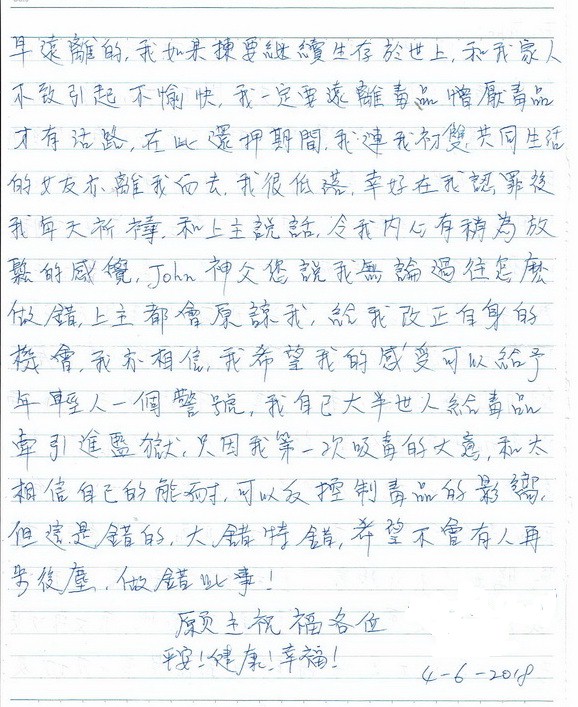 早遠離的,我如果揀要繼續生存於世上,和我家人
不致引起不愉快,我一定要遠離毒品憎厭毒品
才有活路,在此還押期間,我連我初雙共同生活
的女友亦離我而去,我很低落,幸好在我認罪後
我每天祈禱,和上主說話,令我內心有稍為放
鬆的感覺,John神父您說我無論過往怎麼
做錯,上主都會原諒我,給我改正自身的
機會,我亦相信,我希望我的感受可以給予
年輕人一個警號,我自己大半世人給毒品
牽引進監獄,只因我第一次吸毒的大意,和太
相信自己的能耐,可以反控制毒品的影響,
但這是錯的,大錯特錯,希望不會有人再
步後塵,做錯此事!
願主祝福各位
平安!健康!幸福!
4-6-2018